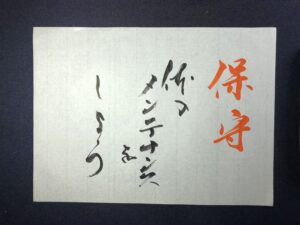 保守
体の
メンテナンスを
しよう